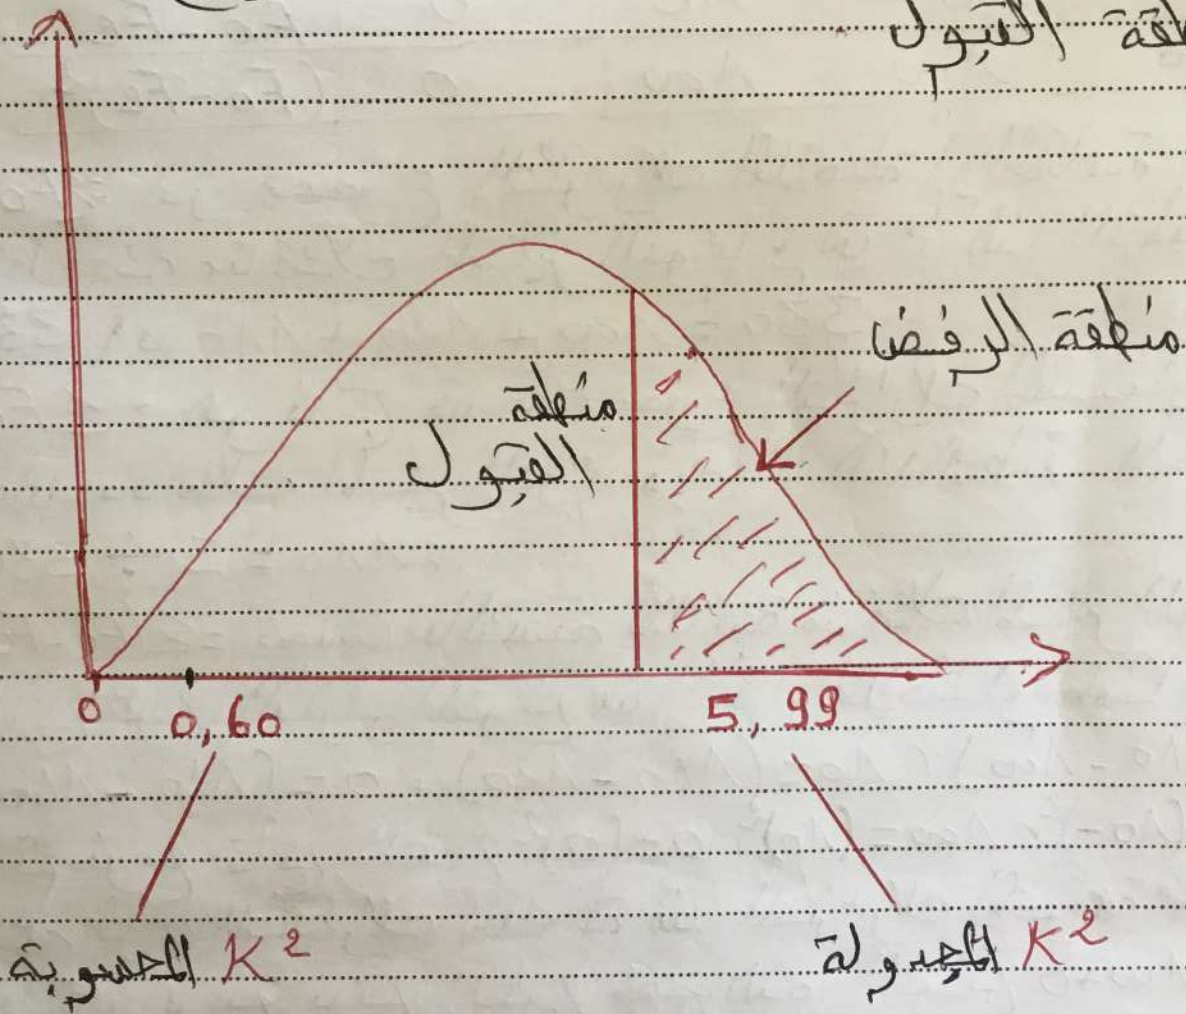 القبول
منطقة الرفض
منطقة
القبول
0
0,60
5,99
K² المحسوبة
K² المجدولة